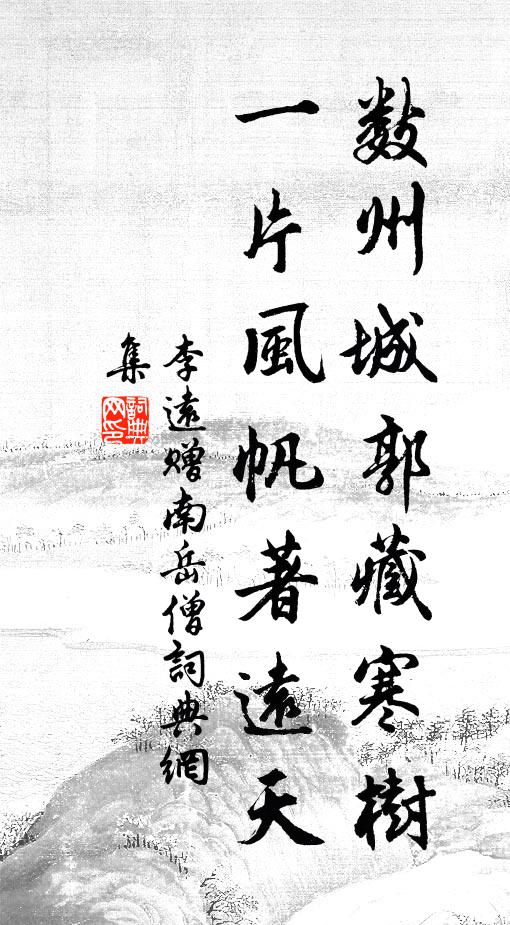 数州城郭藏寒樹
一片風帆著遠天
李遠贈南岳僧詞典網
集
詞典網印